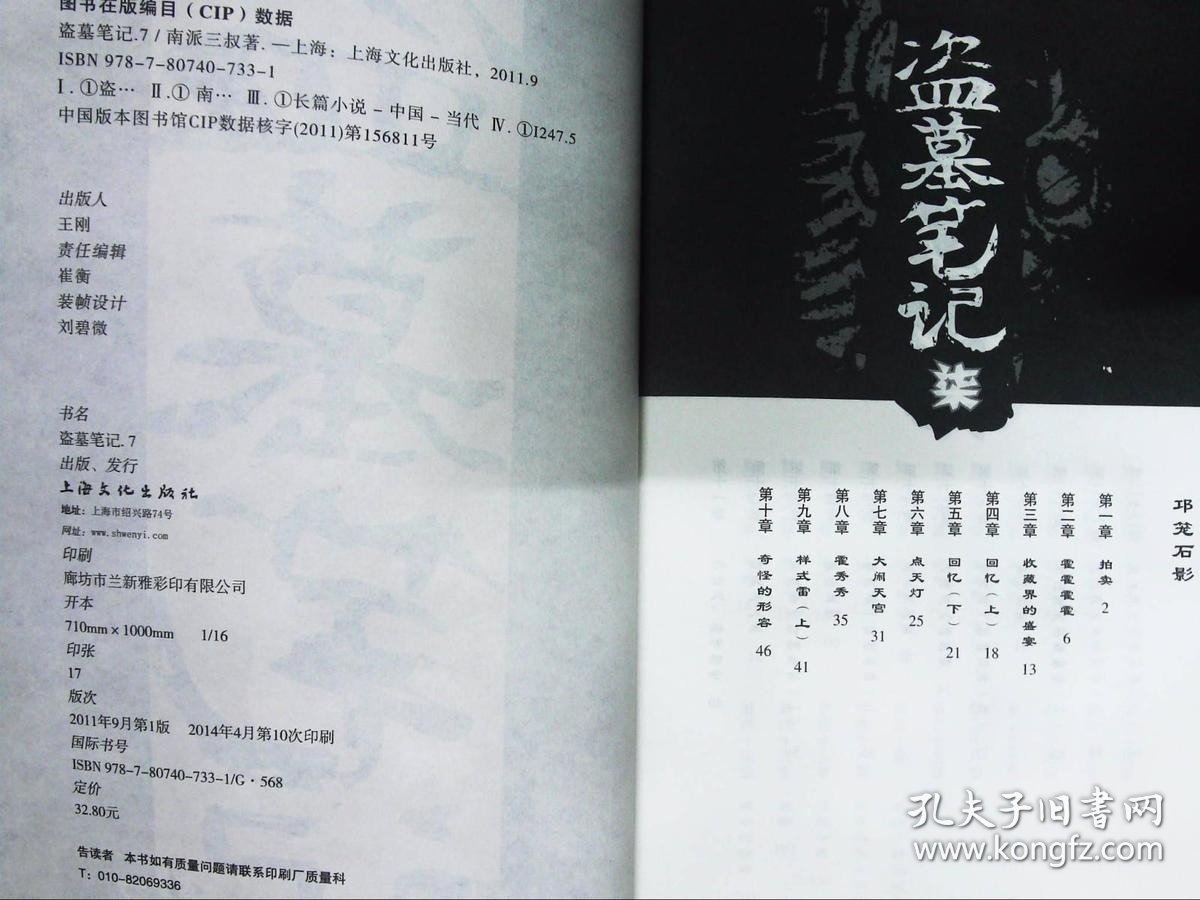 图书在版编目（CIP）数据
盗墓笔记.7 / 南派三叔著. —上海：上海文化出版社，2011.9
ISBN 978-7-80740-733-1
Ⅰ. ①盗… Ⅱ.① 南… Ⅲ. ①长篇小说 – 中国 – 当代 Ⅳ. ①I247.5
中国版本图书馆CIP数据核字(2011)第156811号
出版人
王刚
责任编辑
崔衡
装帧设计
刘碧微
书名
盗墓笔记. 7
出版、发行
上海文化出版社
地址：上海市绍兴路74号
网址：www.shwenyi.com
印刷
廊坊市兰新雅彩印有限公司
开本
710mm × 1000mm 1/16
印张
17
版次
2011年9月第1版 2014年4月第10次印刷
国际书号
ISBN 978-7-80740-733-1/G · 568
定价
32.80元
告读者 本书如有质量问题请联系印刷厂质量科
T：010-82069336
盗墓笔记
柒
邛笼石影
第一章 拍卖 2
第二章 霍霍霍霍 6
第三章 收藏界的盛宴 13
第四章 回忆（上） 18
第五章 回忆（下） 21
第六章 点天灯 25
第七章 大闹天宫 31
第八章 霍秀秀 35
第九章 样式雷（上） 41
第十章 奇怪的形容 46
孔夫子旧书网
www.kongfz.com